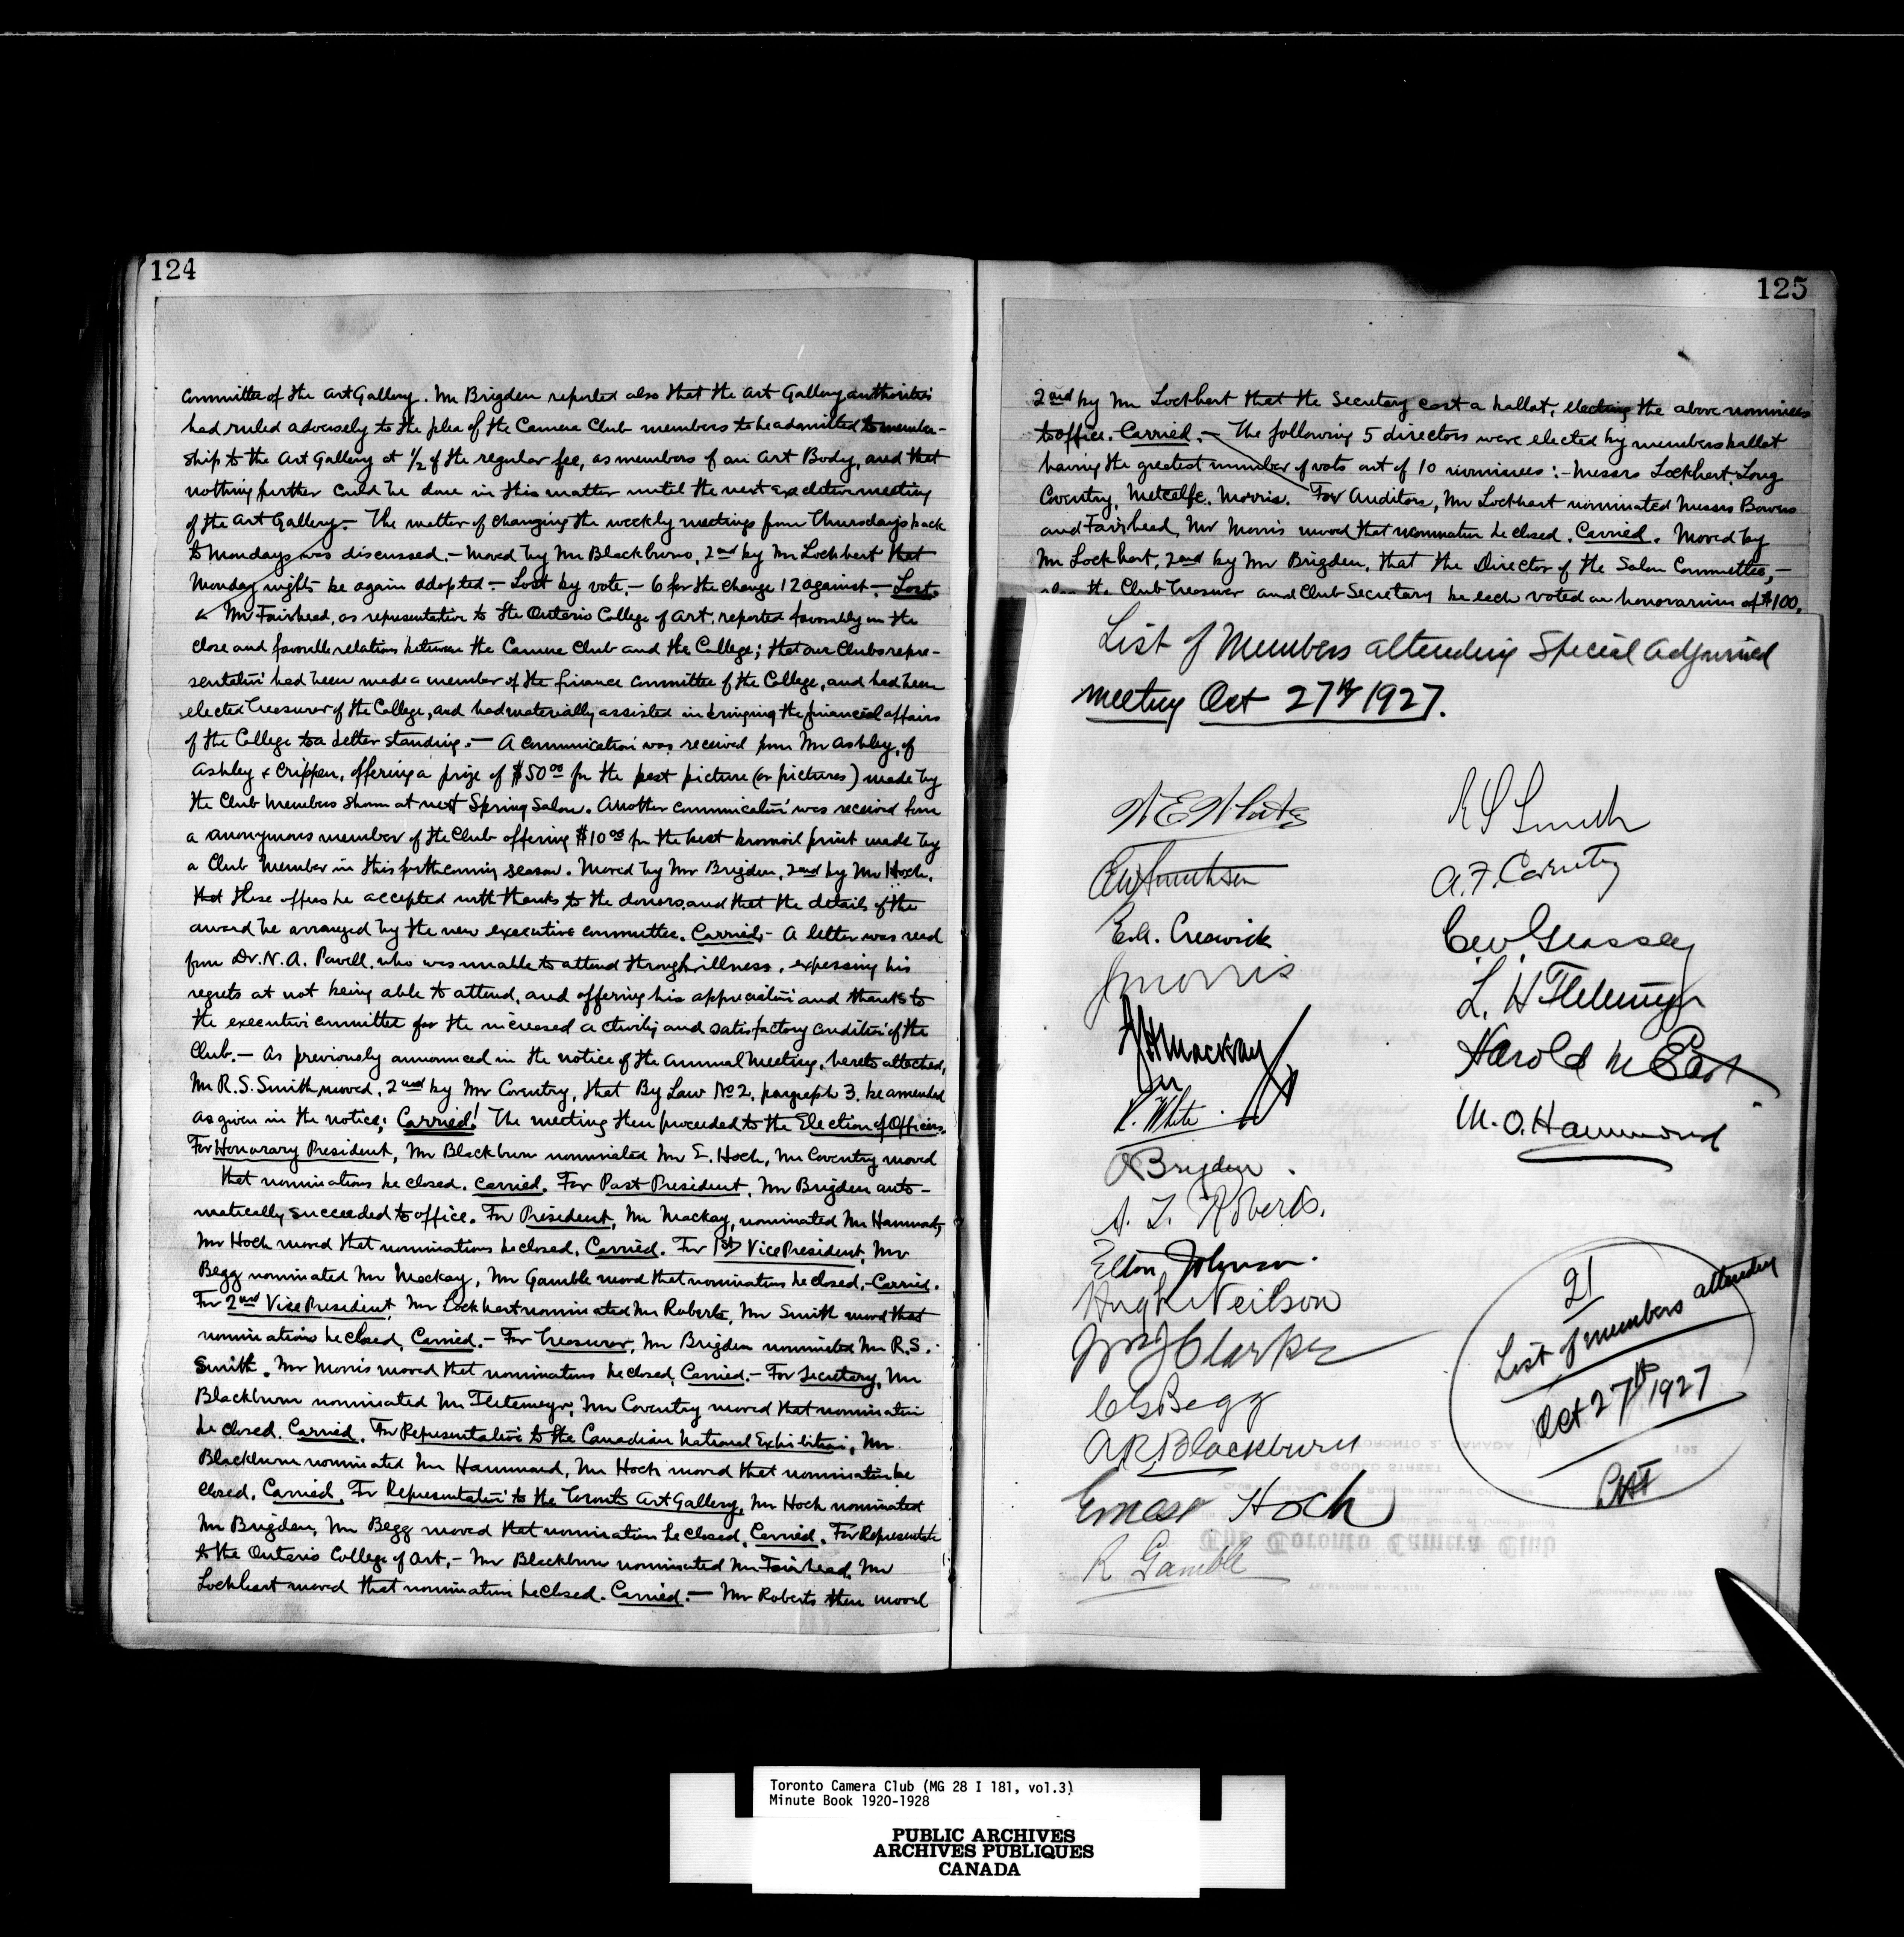 124
Committee of the Art Gallery. Mr Brigden reported also that the Art Gallery authorities
had ruled adversely to the plea of the Camera Club members to be admitted to member-
ship to the Art Gallery at 1/2 of the regular fee, as members of an Art Body, and that
nothing further could be done in this matter until the next executive meeting
of the Art Gallery. — The matter of changing the weekly meetings from Thursdays back
to Mondays was discussed. — Moved by Mr Blackburn, 2nd by Mr Lockhart that
Monday nights be again adopted — Lost by vote, — 6 for the change 12 against. — Lost.
Mr Fairhead, as representative to the Ontario College of Art, reported favorably on the
close and favorable relations between the Camera Club and the College; that our Clubs repre-
sentative had been made a member of the finance committee of the College, and had been
elected Treasurer of the College, and had materially assisted in bringing the financial affairs
of the College to a better standing. — A communication was received from Mr Ashley, of
Ashley & Crippen, offering a prize of $50.00 for the best picture (or pictures) made by
the Club members shown at next Spring Salon. Another communication was received from
a anonymous member of the Club offering $10.00 for the best bromoil print made by
a Club Member in this forthcoming season. Moved by Mr Brigden, 2nd by Mr Hoch,
that these offers be accepted with thanks to the donors, and that the details of the
award be arranged by the new executive committee. Carried. - A letter was read
from Dr. N. A. Powell, who was unable to attend through illness, expessing his
regrets at not being able to attend, and offering his appreciation and thanks to
the executive committee for the increased activity and satisfactory condition of the
Club. — As previously announced in the notice of the Annual Meeting, hereto attached,
Mr R. S. Smith moved, 2nd by Mr Coventry, that By Law No 2, paragraph 3, be amended
as given in the notice; Carried! The meeting then proceeded to the Election of Officers.
For Honorary President, Mr Blackburn nominated Mr E. Hoch, Mr Coventry moved
that nominations be closed. Carried. For Past President, Mr Brigden auto-
matically succeeded to office. For President, Mr Mackay, nominated Mr Hammond,
Mr Hoch moved that nominations be closed, Carried. For 1st Vice President, Mr
Begg nominated Mr Mackay, Mr Gamble moved that nominations be closed. - Carried.
For 2nd Vice President, Mr Lockhart nominated Mr Roberts, Mr Smith moved that
nominations be closed, Carried. — For Treasurer, Mr Brigden nominated Mr R.S.
Smith. Mr Morris moved that nominations be closed, Carried. — For Secretary, Mr
Blackburn nominated Mr Fletemeyer, Mr Coventry moved that nomination
be closed. Carried. For Representative to the Canadian National Exhibition, Mr
Blackburn nominated Mr Hammond, Mr Hoch moved that nomination be
closed. Carried. For Representative to the Toronto Art Gallery, Mr Hoch nominated
Mr Brigden, Mr Begg moved that nomination be closed, Carried. For Representative
to the Ontario College of Art, — Mr Blackburn nominated Mr Fairhead, Mr
Lockhart moved that nomination be closed. Carried. — Mr Roberts then moved
125
2nd by Mr Lockhart that the Secretary cast a ballot, electing the above nominees
to office. Carried. — The following 5 directors were elected by members ballot
having the greatest number of vots out of 10 nominees: - Messrs Lockhart, Long
Coventry, Metcalfe, Morris. For Auditors, Mr Lockhart nominated Messrs Bowers
and Fairhead, Mr Morris moved that nomination be closed. Carried. Moved by
Mr Lockhart, 2nd by Mr Brigden, that the Director of the Salon Committee, —
also the Club Treasurer and Club Secretary be each voted an honorarium of $100.
List of Members attending Special Adjourned
meeting Oct 27th 1927.
E.A. Creswick
J Morris
Mackay
White
Brigden
A. L. Roberts.
Elton Johnson.
Hugh Neilson
Clarke
C G Begg
A R Blackburn
Ernest Hoch
R Gamble
R S Smith
A. F. Coventry
L. H Fletemeyer
Harold M East
M. O. Hammond
21
List of members attending
Oct 27th 1927
Toronto Camera Club (MG 28 I 181, vol.3)
Minute Book 1920-1928
PUBLIC ARCHIVES
ARCHIVES PUBLIQUES
CANADA